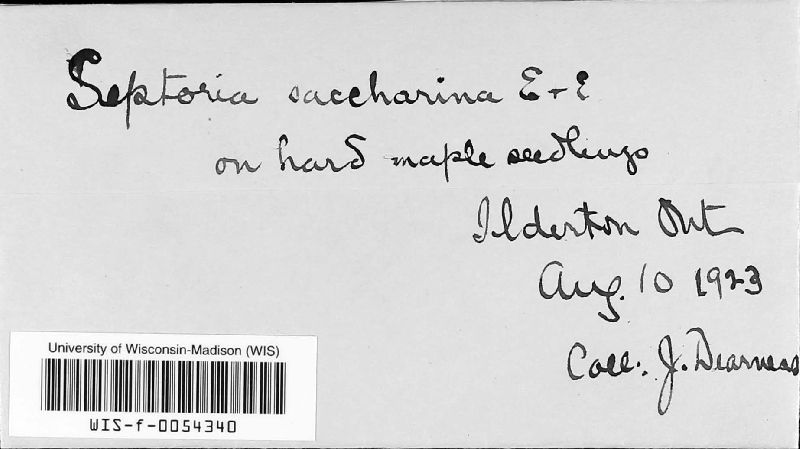 Septoria saccharina E+E
on hard maple seedlings
Ilderton Ont
Aug. 10 1923
Coll: J. Dearness
University of Wisconsin-Madison (WIS)
WIS-f-0054340